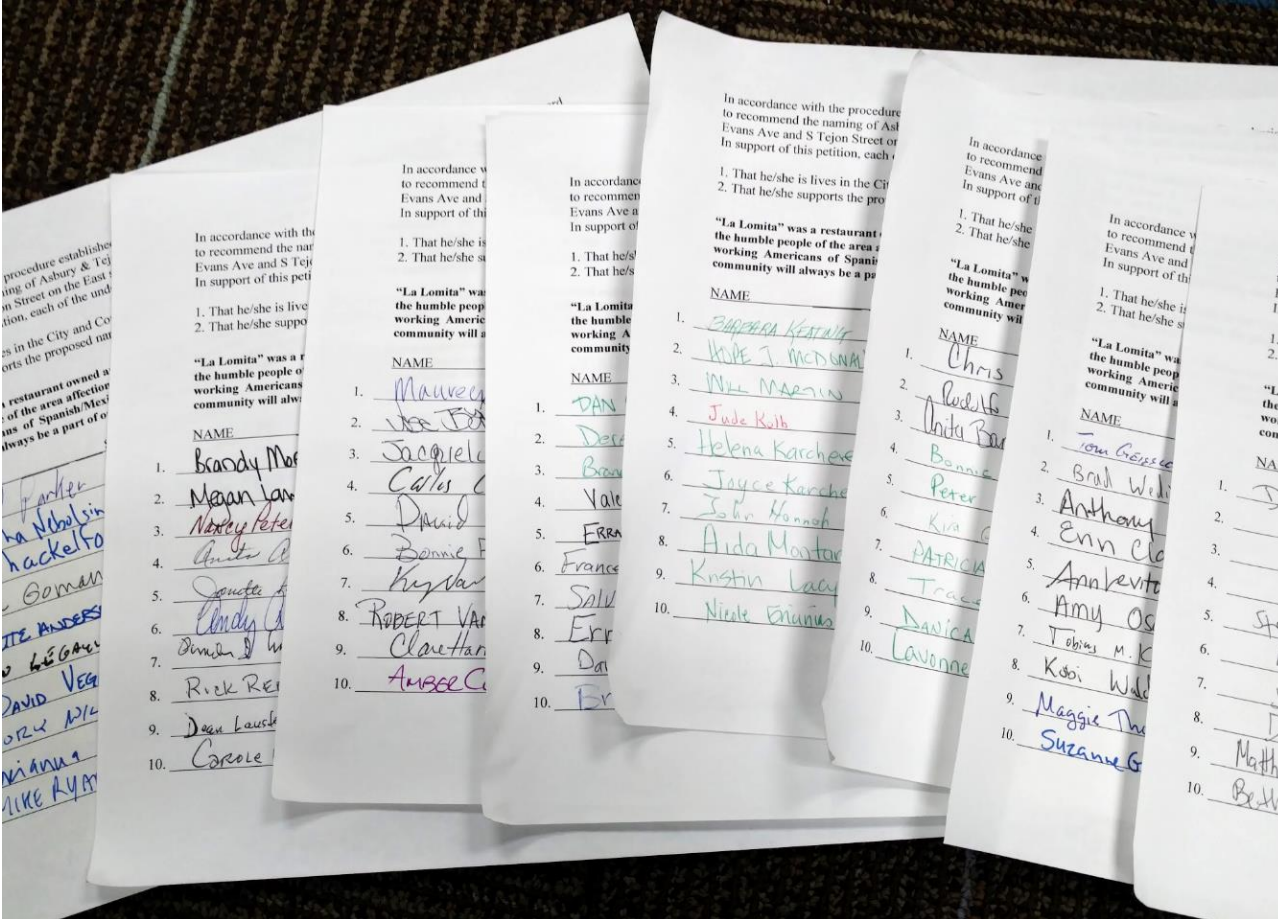 procedure established
ing of Asbury & Tej
on Street on the East s
tion, each of the und
es in the City and Co
orts the proposed nam
restaurant owned a
e of the area affection
ans of Spanish/Mexi
always be a part of o
Parker
Nebolsin
hackelfo
Goman
ITE ANDERS
DAVID VEG
MIKE RYAN
In accordance with the
to recommend the nam
Evans Ave and S Tejo
In support of this peti
1. That he/she is live
2. That he/she suppo
"La Lomita" was a r
the humble people o
working Americans
community will alw
NAME
1. Brandy Mor
2. Megan Lan
3. Nancy Pete
4. Anita
5.
6. Cindy
7.
8. Rick RE
9. Dean
10. CAROLE
In accordance w
to recommend t
Evans Ave and
In support of thi
1. That he/she is
2. That he/she su
"La Lomita" was
the humble peop
working Americ
community will a
NAME
1. Maureen
2.
3. Jacquel
4. Carlos C
5. David
6. Bonnie F
7.
8. ROBERT VAN
9. Clare Har
10. AMBER C
In accordanc
to recommen
Evans Ave a
In support of
1. That he/s
2. That he/s
"La Lomita
the humble
working A
community
NAME
1. DAN
2. Des
3. Bran
4. Vale
5. ERRA
6. France
7. SALV
8. Err
9. Da
10. Br
In accordance with the procedure
to recommend the naming of Asb
Evans Ave and S Tejon Street or
In support of this petition, each
1. That he/she is lives in the Cit
2. That he/she supports the pro
"La Lomita" was a restaurant
the humble people of the area a
working Americans of Spanis
community will always be a pa
NAME
1. BARBARA KEATING
2. HOPE J. MCDONAL
3. WILL MARTIN
4. Jude Kolb
5. Helena Karchere
6. Joyce Karche
7. John Hannah
8. Aida Montan
9. Kristin Lacy
10. Nicole
In accordance
to recommend
Evans Ave and
In support of t
1. That he/she
2. That he/she
"La Lomita" w
the humble peo
working Amer
community wil
NAME
1. Chris
2. Rodolfo
3. Anita Ba
4. Bonnie
5. Peter
6. Kira
7. PATRICIA
8. Trac
9. DANICA
10. Lavonne
In accordance w
to recommend t
Evans Ave and
In support of th
1. That he/she is
2. That he/she s
"La Lomita" wa
the humble peop
working Americ
community will a
NAME
1. Tom
2. Brad Wedi
3. Anthony
4. Erin Clo
5. Ann Levito
6. Amy Os
7. Tobias M. K
8. Kobi Wald
9. Maggie Tho
10. Suzanne G
1.
2.
"L
the
wo
con
NA
1.
2.
3.
4.
5. St
6.
7.
8.
9. Matth
10. Beth